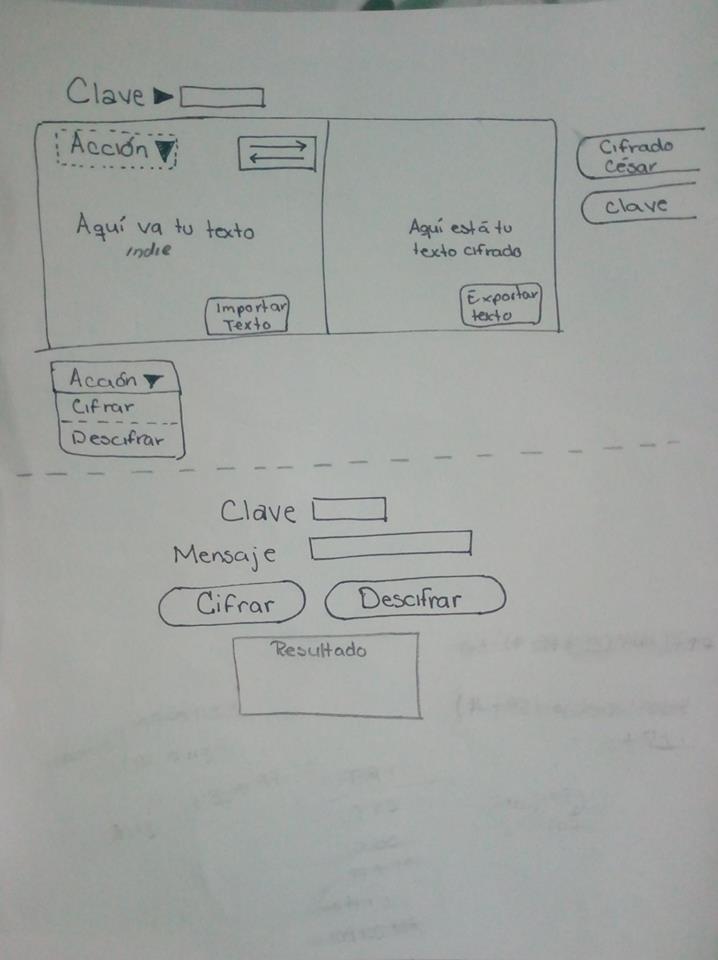 Clave
Acción
Aquí va tu texto
indie
Importar
Texto
Aquí está tu
texto cifrado
Exportar
texto
Cifrado
César
clave
Acción
Cifrar
Descifrar
Clave
Mensaje
Cifrar
Descifrar
Resultado